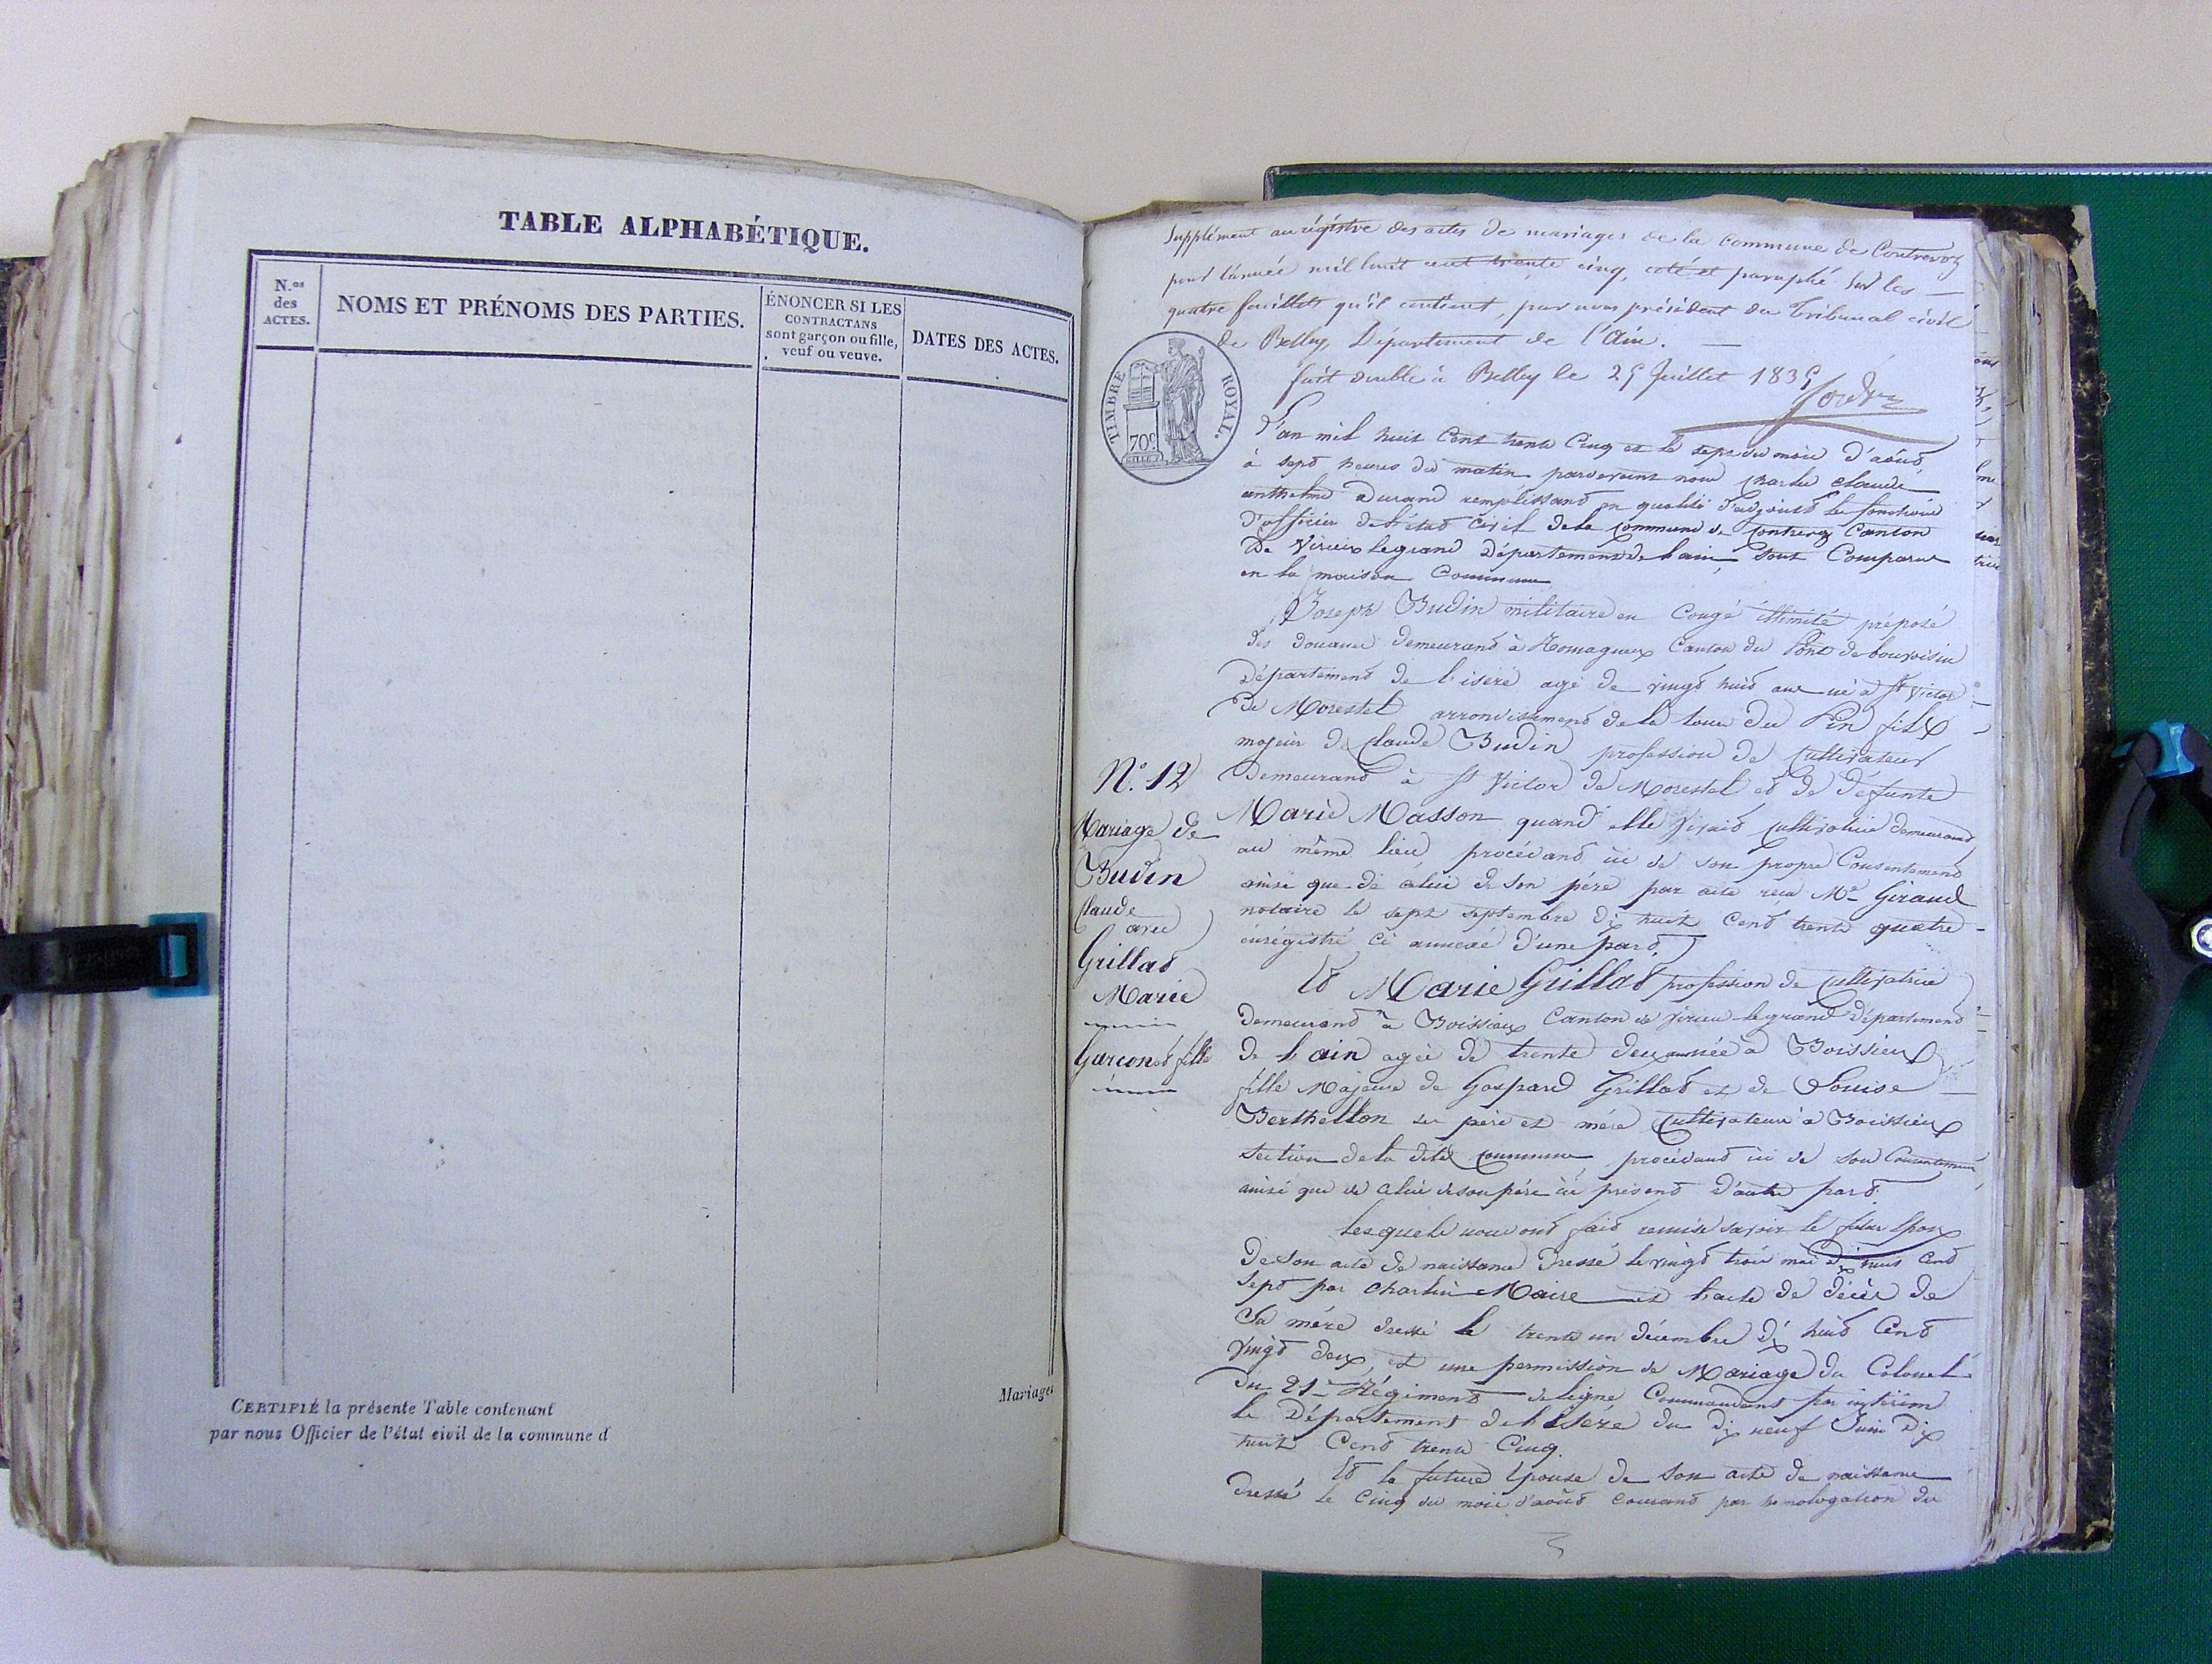 TABLE ALPHABÉTIQUE.
N.os
des
ACTES.
NOMS ET PRÉNOMS DES PARTIES.
ÉNONCER SI LES
CONTRACTANS
sont garçon ou fille,
veuf ou veuve.
DATES DES ACTES.
Mariages
CERTIFIÉ la présente Table contenant
par nous Officier de l'état civil de la commune d
Supplément au régistre des actes de mariages de la commune de Contrevoz
pour l'année mil huit cent trente cinq, coté et paraphé sur les
quatre feuillets qu'il contient, par nous président du Tribunal civil
de Belley, Département de l'Ain.
fait double à Belley le 25 Juillet 1835
TIMBRE ROYAL.
70c
L'an mil huit Cent trente Cinq et le sept du mois d'août
à sept heures du matin pardevant nous Charles Claude
anthelme Durand remplissant en qualité d'adjoint les fonctions
d'officier de l'état civil de la commune de Contrevoz Canton
De Virieux legrand Département de l'ain, sont Comparus
en la maison Commune
Joseph Budin militaire en Congé illimité préposé
des Douanes Demeurant à Romagneux Canton du Pont de bauvoisin
Département de l'isère agé de vingt huit ans né à St Victor
De Morestel arrondissement de la tour du Pin fils
majeur de Claude Budin profession de Cultivateur
Demeurant à St Victor de Morestel et de Défunte
Marie Masson quand elle vivait cultivatrice demeurant
au même lieu, procédant ici de son propre Consentement
ainsi que de celui de son père par acte reçu Me Giraud
notaire le sept septembre dix huit Cent trente quatre
enrégistré ci annexé d'une part.
Et Marie Grillat profession de Cultivatrice
Demeurant à Boissieux Canton de Virieu legrand Département
de l'ain agée de trente deux ans née à Boissieux
fille Majeure de Gaspard Grillat et de Louise
Berthellon ses père et mère Cultivateurs à Boissieux
section de la dite commune, procédant ici de son Consentement
ainsi que de celui de son père ici présent d'autre part.
Lesquels nous ont fait remise savoir le futur Epoux
De son acte de naissance Dressé le vingt trois mai dix huit Cent
sept par Charlin Maire et l'acte de décès de
Sa mère dressé le trente un décembre dix huit Cent
Vingt deux, et une permission de Mariage du Colonel
du 21e Régiment de ligne Commandant par interim
le Département de l'Isère du dix neuf Juin Dix
huit Cent trente Cinq.
Et la future Epouse de son acte de naissance
Dressé le Cinq du mois d'août courant par homologation du
N.° 12
Mariage de
Budin
Claude
avec
Grillat
Marie
Garçon et fille